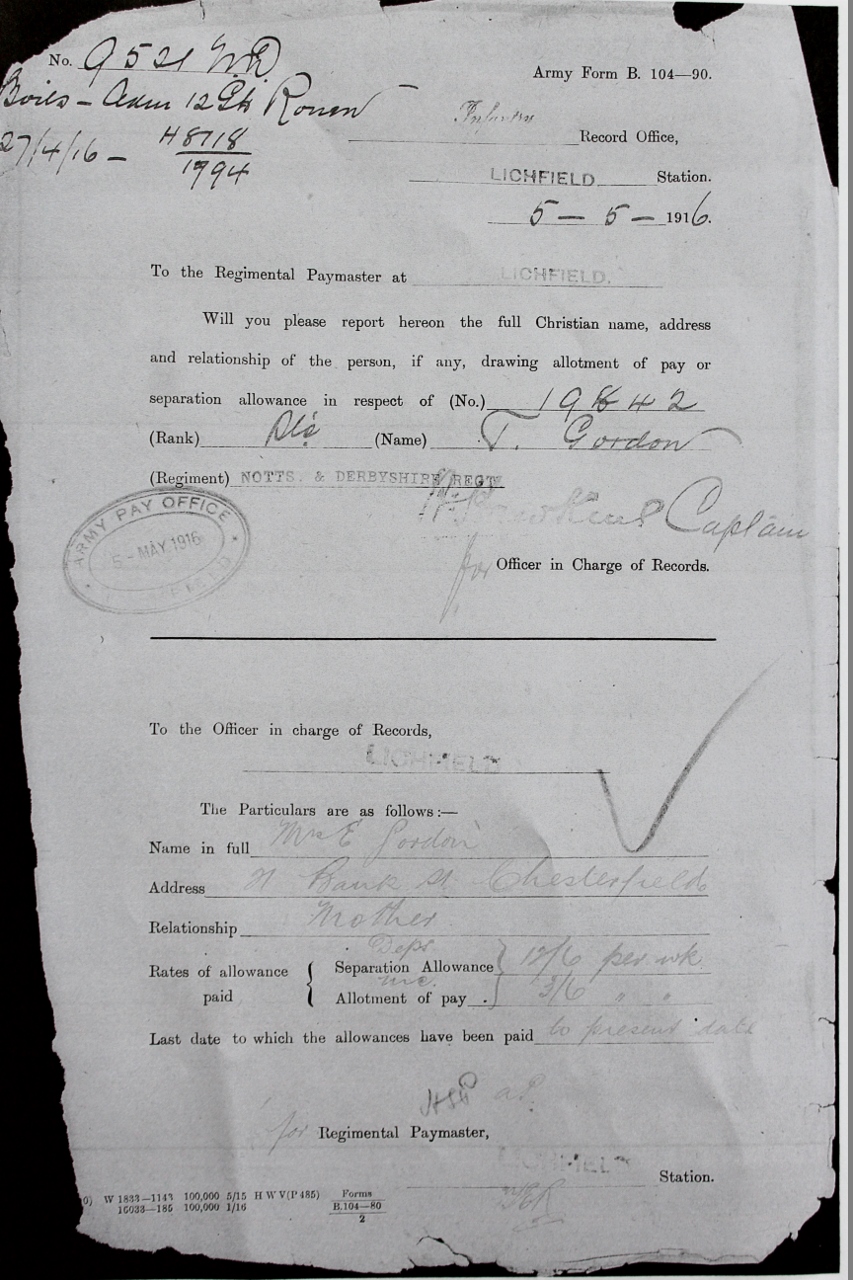 No. 9521 W.R
Boils - Adm 12 GH Rouen
27/4/16 - H8718
1794
Army Form B. 104—90.
Infantry Record Office,
LICHFIELD Station.
5 — 5 — 1916.
To the Regimental Paymaster at LICHFIELD.
Will you please report hereon the full Christian name, address
and relationship of the person, if any, drawing allotment of pay or
separation allowance in respect of (No.)
(Rank) Pte (Name) T. Gordon
(Regiment) NOTTS. & DERBYSHIRE REGT
Captain
ARMY PAY OFFICE
5 - MAY. 1916
for Officer in Charge of Records.
To the Officer in charge of Records,
LICHFIELD
The Particulars are as follows:—
Name in full Mrs E Gordon
Address Bank St Chesterfield
Relationship Mother
Deps
Rates of allowance paid { Separation Allowance } 12/6 per wk
inc.
Allotment of pay . } 3/6 " "
Last date to which the allowances have been paid to present date
for Regimental Paymaster,
LICHFIELD Station.
0) W 1833—1143 100,000 5/15 H W V(P 485) Forms
16033—185 100,000 1/16 B.104—80
2